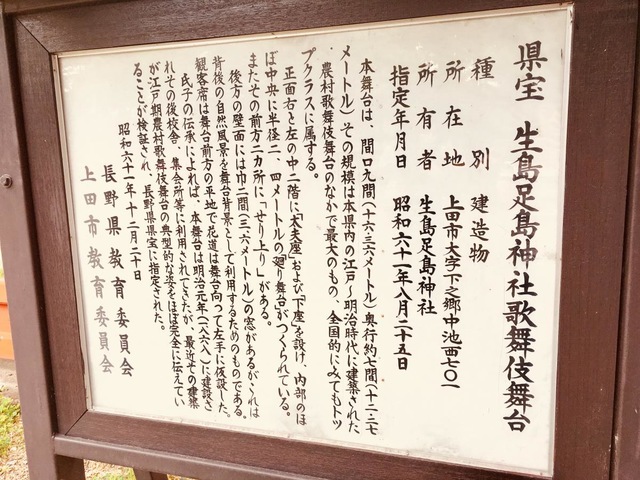 県宝 生島足島神社歌舞伎舞台
種別 建造物
所在地 上田市大字下之郷中池西七〇一
所有者 生島足島神社
指定年月日 昭和六十一年八月二十五日
本舞台は、間口九間(十六・三六メートル)奥行約七間(十二・二七
メートル)その規模は本県内の江戸~明治時代に建築された
農村歌舞伎舞台のなかで最大のもの、全国的にみてもトッ
プクラスに属する。
正面右と左の中二階に「太夫座」および「下座」を設け、内部のほ
ぼ中央に半径二、四メートルの廻り舞台がつくられている。
またその前方二カ所に「せり上り」がある。
後方の壁面には巾二間(三・六メートル)の窓があるがこれは
背後の自然風景を舞台背景として利用するためのものである。
観客席は舞台前方の平地で花道は舞台向って左手に仮設した。
氏子の伝承によれば、本舞台は明治元年(一八六八)に建設さ
れその後校舎、集会所等に利用されてきたが、最近その建築
が江戸期農村歌舞伎舞台の典型的な姿をほぼ完全に伝えてい
ることが検証され、長野県県宝に指定された。
昭和六十一年十二月二十日
長野県教育委員会
上田市教育委員会